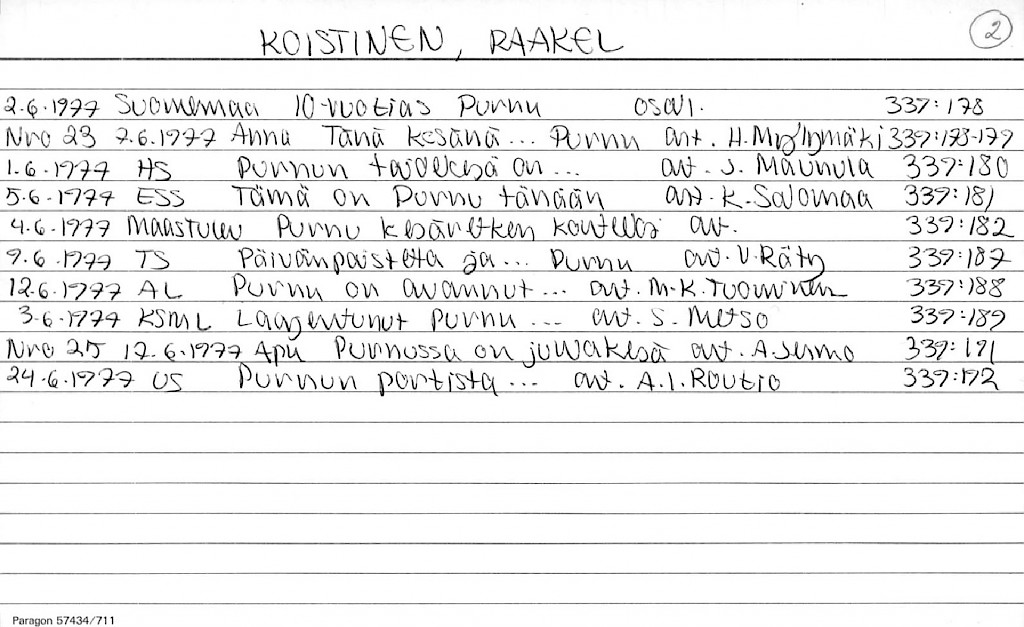 KOISTINEN, RAAKEL 2
2.6.1977 Suomenmaa 10-vuotias Purnu osal. 339:178
Nro 23 7.6.1977 Anna Tänä kesänä... Purnu art. H. Myllymäki 339:178-179
1.6.1977 HS Purnun taidekesä on... art. S. Maunula 339:180
5.6.1977 ESS Tämä on Purnu tänään art. K. Salomaa 339:181
4.6.1977 Maastulev Purnu kesäretken kohteeksi art. 339:182
9.6.1977 TS Päivänpaistetta ja... Purnu art. V. Räty 339:187
12.6.1977 AL Purnu on avannut... art. M-K. Tuominen 339:188
3.6.1977 KSML Laajentunut Purnu... art. S. Metso 339:189
Nro 25 17.6.1977 Apu Purnussa on juhlakesä art. A. Jermo 339:191
24.6.1977 US Purnun portista... art. A.I. Routio 339:192
Paragon 57434/711